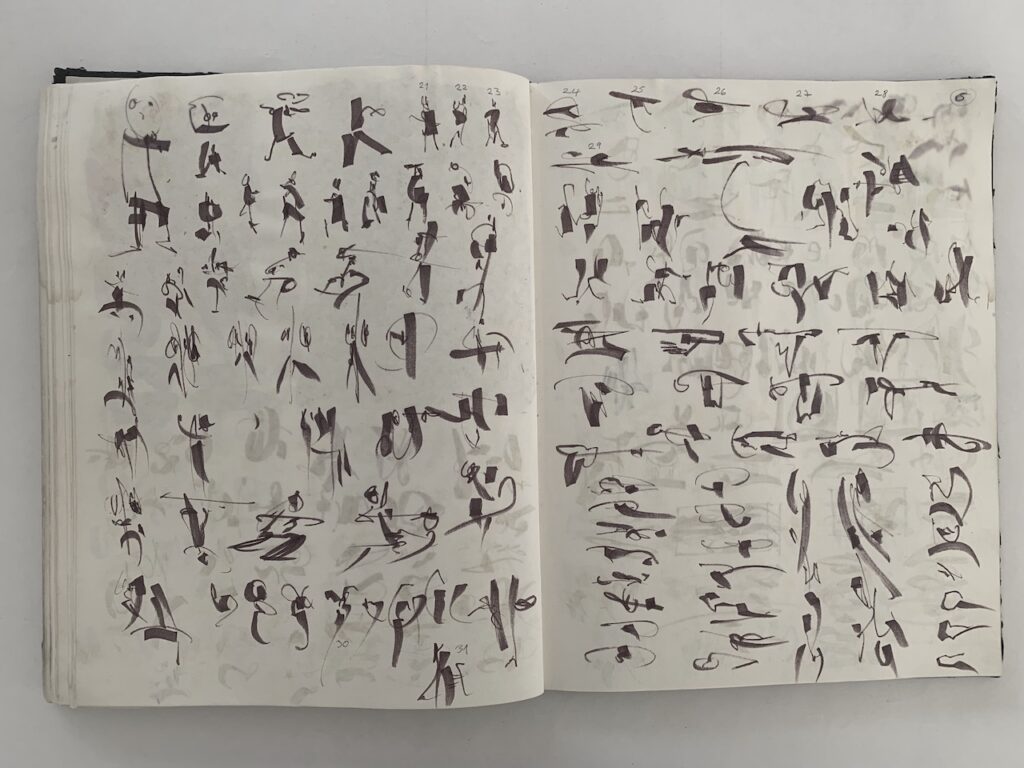 21 22 23
30
31
24 25 26 27 28 6
29